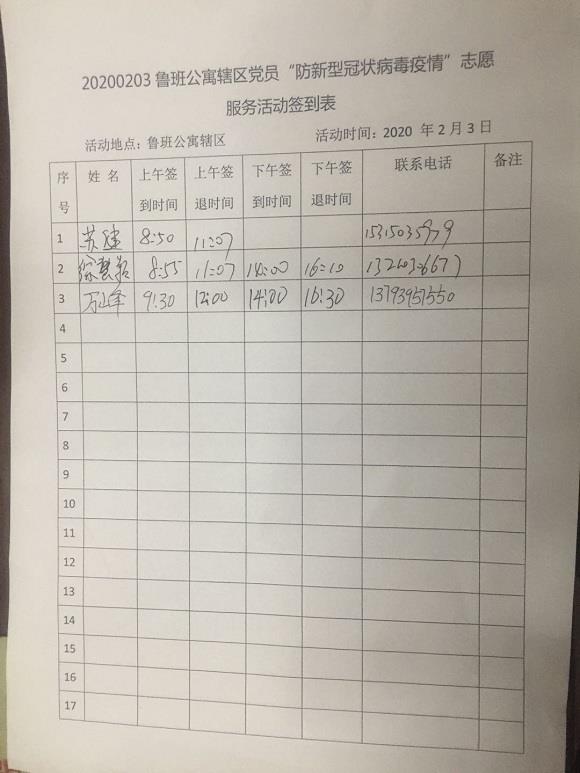 20200203 鲁班公寓辖区党员“防新型冠状病毒疫情”志愿
服务活动签到表
活动地点：鲁班公寓辖区 活动时间：2020 年 2 月 3 日
序号 姓 名 上午签到时间 上午签退时间 下午签到时间 下午签退时间 联系电话 备注
1 苏建 8:50 11:07 15315035979
2 8:55 11:07 14:00 16:10
3 万山峰 9:30 12:00 14:00 16:30 13793957550
4
5
6
7
8
9
10
11
12
13
14
15
16
17